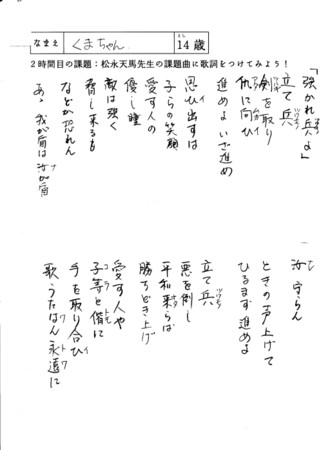 なまえ くまちゃん 14歳
2時間目の課題：松永天馬先生の課題曲に歌詞をつけてみよう！
「強かれ兵よ」
立て 兵
剣を取り
仇に向ひ
進めよ いざ進め
思ひ出すは
子らの笑顔
愛す人の
優し瞳
敵は強く
脅し来るも
などか恐れん
あゝ 我が盾は汝が盾
汝 守らん
ときの声上げて
ひるまず進めよ
立て 兵
悪を倒し
平和来らば
勝ちどき上げ
愛す人や
子等と偕に
手を取り合ひ
歌うたはん 永遠に